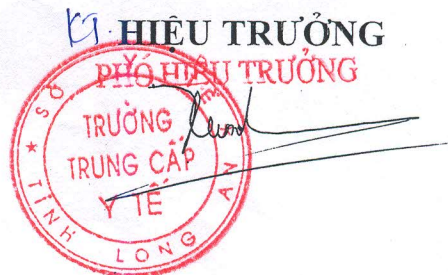 KT. HIỆU TRƯỞNG
PHÓ HIỆU TRƯỞNG
SỞ Y TẾ
TRƯỜNG
TRUNG CẤP
Y TẾ
★ TỈNH LONG AN